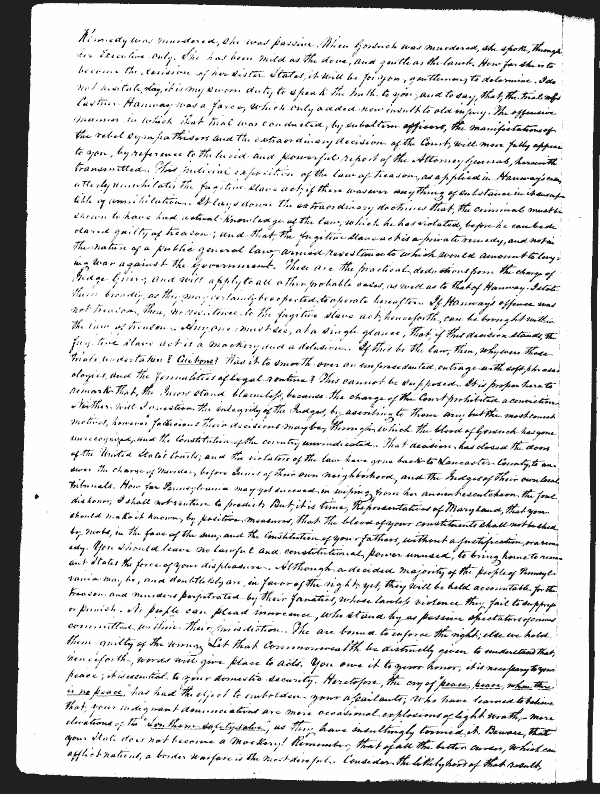 Kennedy was murdered, she was passive. When Gorsuch was murdered, she spoke, through
her Executive only. She has been mild as the dove, and gentle as the lamb. How far she is to
become the derision of her sister States, it will be for you, gentlemen, to determine. I do
not hesitate, day, it is my sworn duty to speak the truth to you, and to say, that, the trial of
Castner Hanway was a farce, which only added new insult to old injury. The offensive
manner in which that trial was conducted, by subaltern officers, the manifestations of
the rebel sympathisers and the extraordinary decision of the Court, will more fully appear
to you, by reference to the lucid and powerful report of the Attorney General, herewith
transmitted. This judicial exposition of the law of treason, as applied in Hanway's case
utterly annihilates the fugitive slave act, if there was ever any thing of substance in it suscep-
tible of annihilation. It lays down the extraordinary doctrine that, the criminal must be
shown to have had actual knowledge of the law, which he has violated, before he can be de-
clared guilty of treason; and that, the fugitive slave act is a private remedy, and not in
the nature of a public general law, armed resistance to which would amount to levy-
ing war against the Government. These are the practical deductions from the charge of
Judge Grier, and will apply to all other probable cases, as well as to that of Hanway. I state
them broadly, as they may certainly be expected, to operate hereafter. If Hanway's offense was
not treason, then, no resistance to the fugitive slave act, henceforth, can be brought within
the law of treason. Any one must see, at a single glance, that, if this decision stands, the
fugitive slave act is a mockery and a delusion. If this be the law, then, why were those
trials undertaken? Cui bono? Was it to smooth over an unprecedented outrage with soft phrase-
ologies, and the formalities of legal routine? This cannot be supposed. It is proper here to
remark that, the Jurors stand blameless, because the charge of the Court prohibited a conviction.
Neither will I question the integrity of the Judges, by ascribing to them any but the most correct
motives, however fallacious their decisions may be, through which the blood of Gorsuch has gone
unrecompensed, and the Constitution of the country unvindicated. That decision has closed the doors
of the United States Courts, and the violators of the law have gone back to Lancaster County, to an-
swer the charge of Murder, before Juries of their own neighborhood, and the Judges of their own local
tribunals. How far Pennsylvania may yet succeed, in wiping from her ancient escutcheon, the foul
dishonor, I shall not venture to predict. But it is time, Representatives of Maryland, that you
should make it known, by positive measures, that the blood of your constituents shall not be shed
by mobs, in the face of the sun, and the Constitution of your fathers, without a justification, or a rem-
edy. You should leave no lawful and constitutional power unused, to bring home to recus-
ant States the force of your displeasure. Although a decided majority of the people of Pennsyl-
vania may be, and doubtlessly are, in favor of the right, yet, they will be held accountable for the
treason and murders perpetrated by their fanatics, whose lawless violence they fail to suppress
or punish. No people can plead innocence, who stand by as passive spectators of crimes
committed within their jurisdiction. They are bound to enforce the right, else we hold
them guilty of the wrong. Let that Commonwealth be distinctly given to understand that,
henceforth, words will give place to acts. You owe it to your honor, it is necessary to your
peace; it is essential to your domestic security. Heretofore, the cry of peace, peace, when there
is no peace, has had the effect to embolden your assailants; who have learned to believe
that, your indignant denunciations are mere occasional explosions of light wrath, mere
elevations of the "Southern safety valve", as they have insultingly termed it. Beware, that
your State does not become a mockery! Remember, that of all the bitter curses, which can
afflict nations, a border warfare is the most direful. Consider the likelyhood of that result,